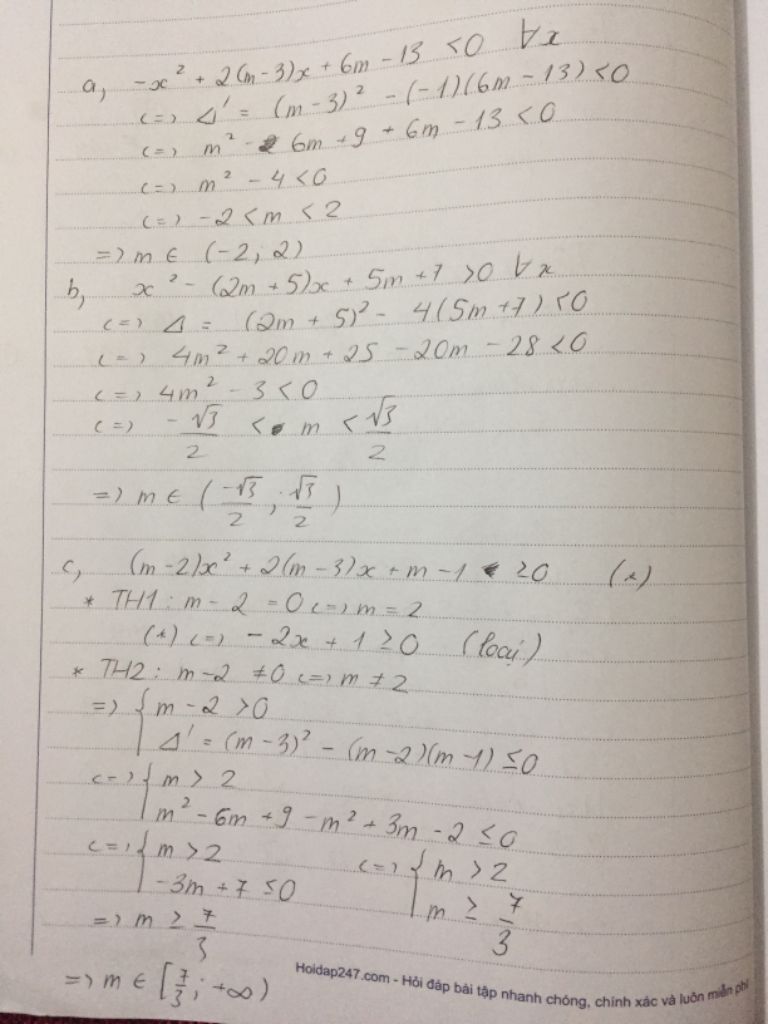 a, -x² + 2(m-3)x + 6m - 13 < 0 ∀x
<=> Δ' = (m-3)² - (-1)(6m-13) < 0
<=> m² - 6m + 9 + 6m - 13 < 0
<=> m² - 4 < 0
<=> -2 < m < 2
=> m ∈ (-2; 2)
b, x² - (2m+5)x + 5m + 7 > 0 ∀x
<=> Δ = (2m + 5)² - 4(5m+7) < 0
<=> 4m² + 20m + 25 - 20m - 28 < 0
<=> 4m² - 3 < 0
<=> -√3/2 < m < √3/2
=> m ∈ (-√3/2; √3/2)
c, (m-2)x² + 2(m-3)x + m - 1 ≥ 0 (*)
* TH1: m - 2 = 0 <=> m = 2
(*) <=> -2x + 1 ≥ 0 (loại)
* TH2: m - 2 ≠ 0 <=> m ≠ 2
=> { m - 2 > 0
Δ' = (m-3)² - (m-2)(m-1) ≤ 0
<=> { m > 2
m² - 6m + 9 - m² + 3m - 2 ≤ 0
<=> { m > 2
-3m + 7 ≤ 0
<=> { m > 2
m ≥ 7/3
=> m ≥ 7/3
=> m ∈ [7/3; +∞)
Hoidap247.com - Hỏi đáp bài tập nhanh chóng, chính xác và luôn miễn phí